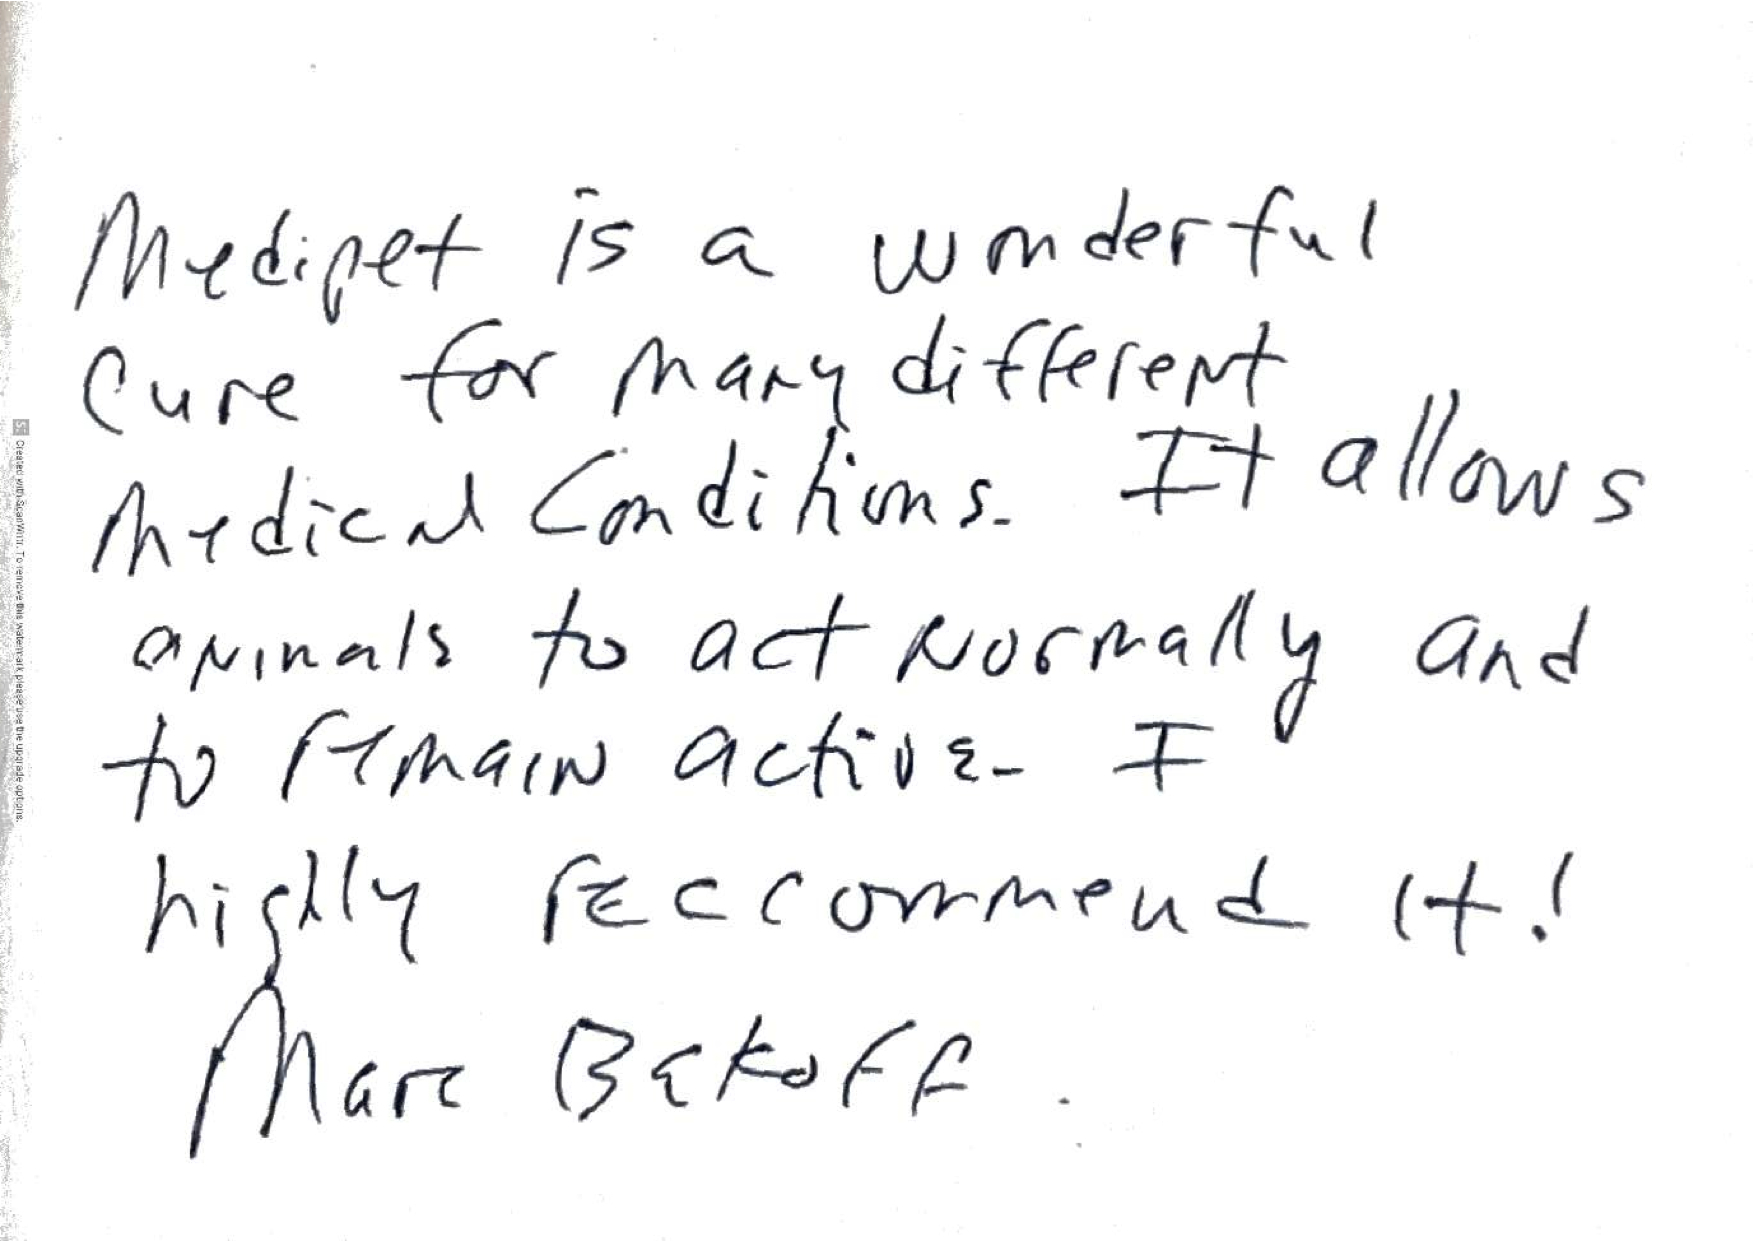 Medipet is a wonderful
cure for many different
medical conditions. It allows
animals to act normally and
to remain active. I
highly reccommend it!
Marc Bekoff.
Created with ScanWritr. To remove this watermark please use the upgrade options.